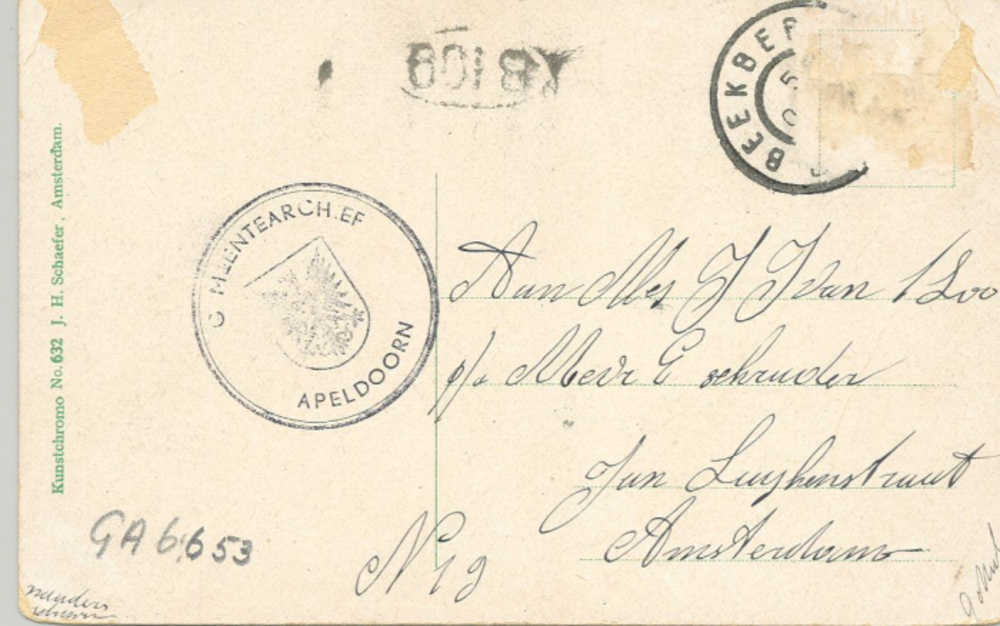 BEEKBER
Kunstchromo No. 632 J. H. Schaefer, Amsterdam.
GEMEENTEARCHIEF
APELDOORN
Aan Mej J J Van 't Loo
p/a Mevr E schruder
Jan Luykenstraat
Amsterdam
N 19
GA 6.653